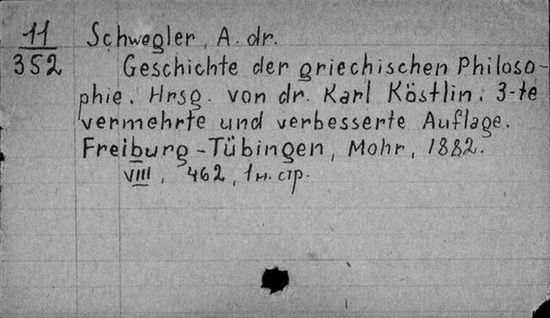 11
352
Schwegler, A. dr.
Geschichte der griechischen Philoso-
phie. Hrsg. von dr. Karl Köstlin. 3-te
vermehrte und verbesserte Auflage.
Freiburg-Tübingen, Mohr, 1882.
VIII, 462, 1 н. стр.